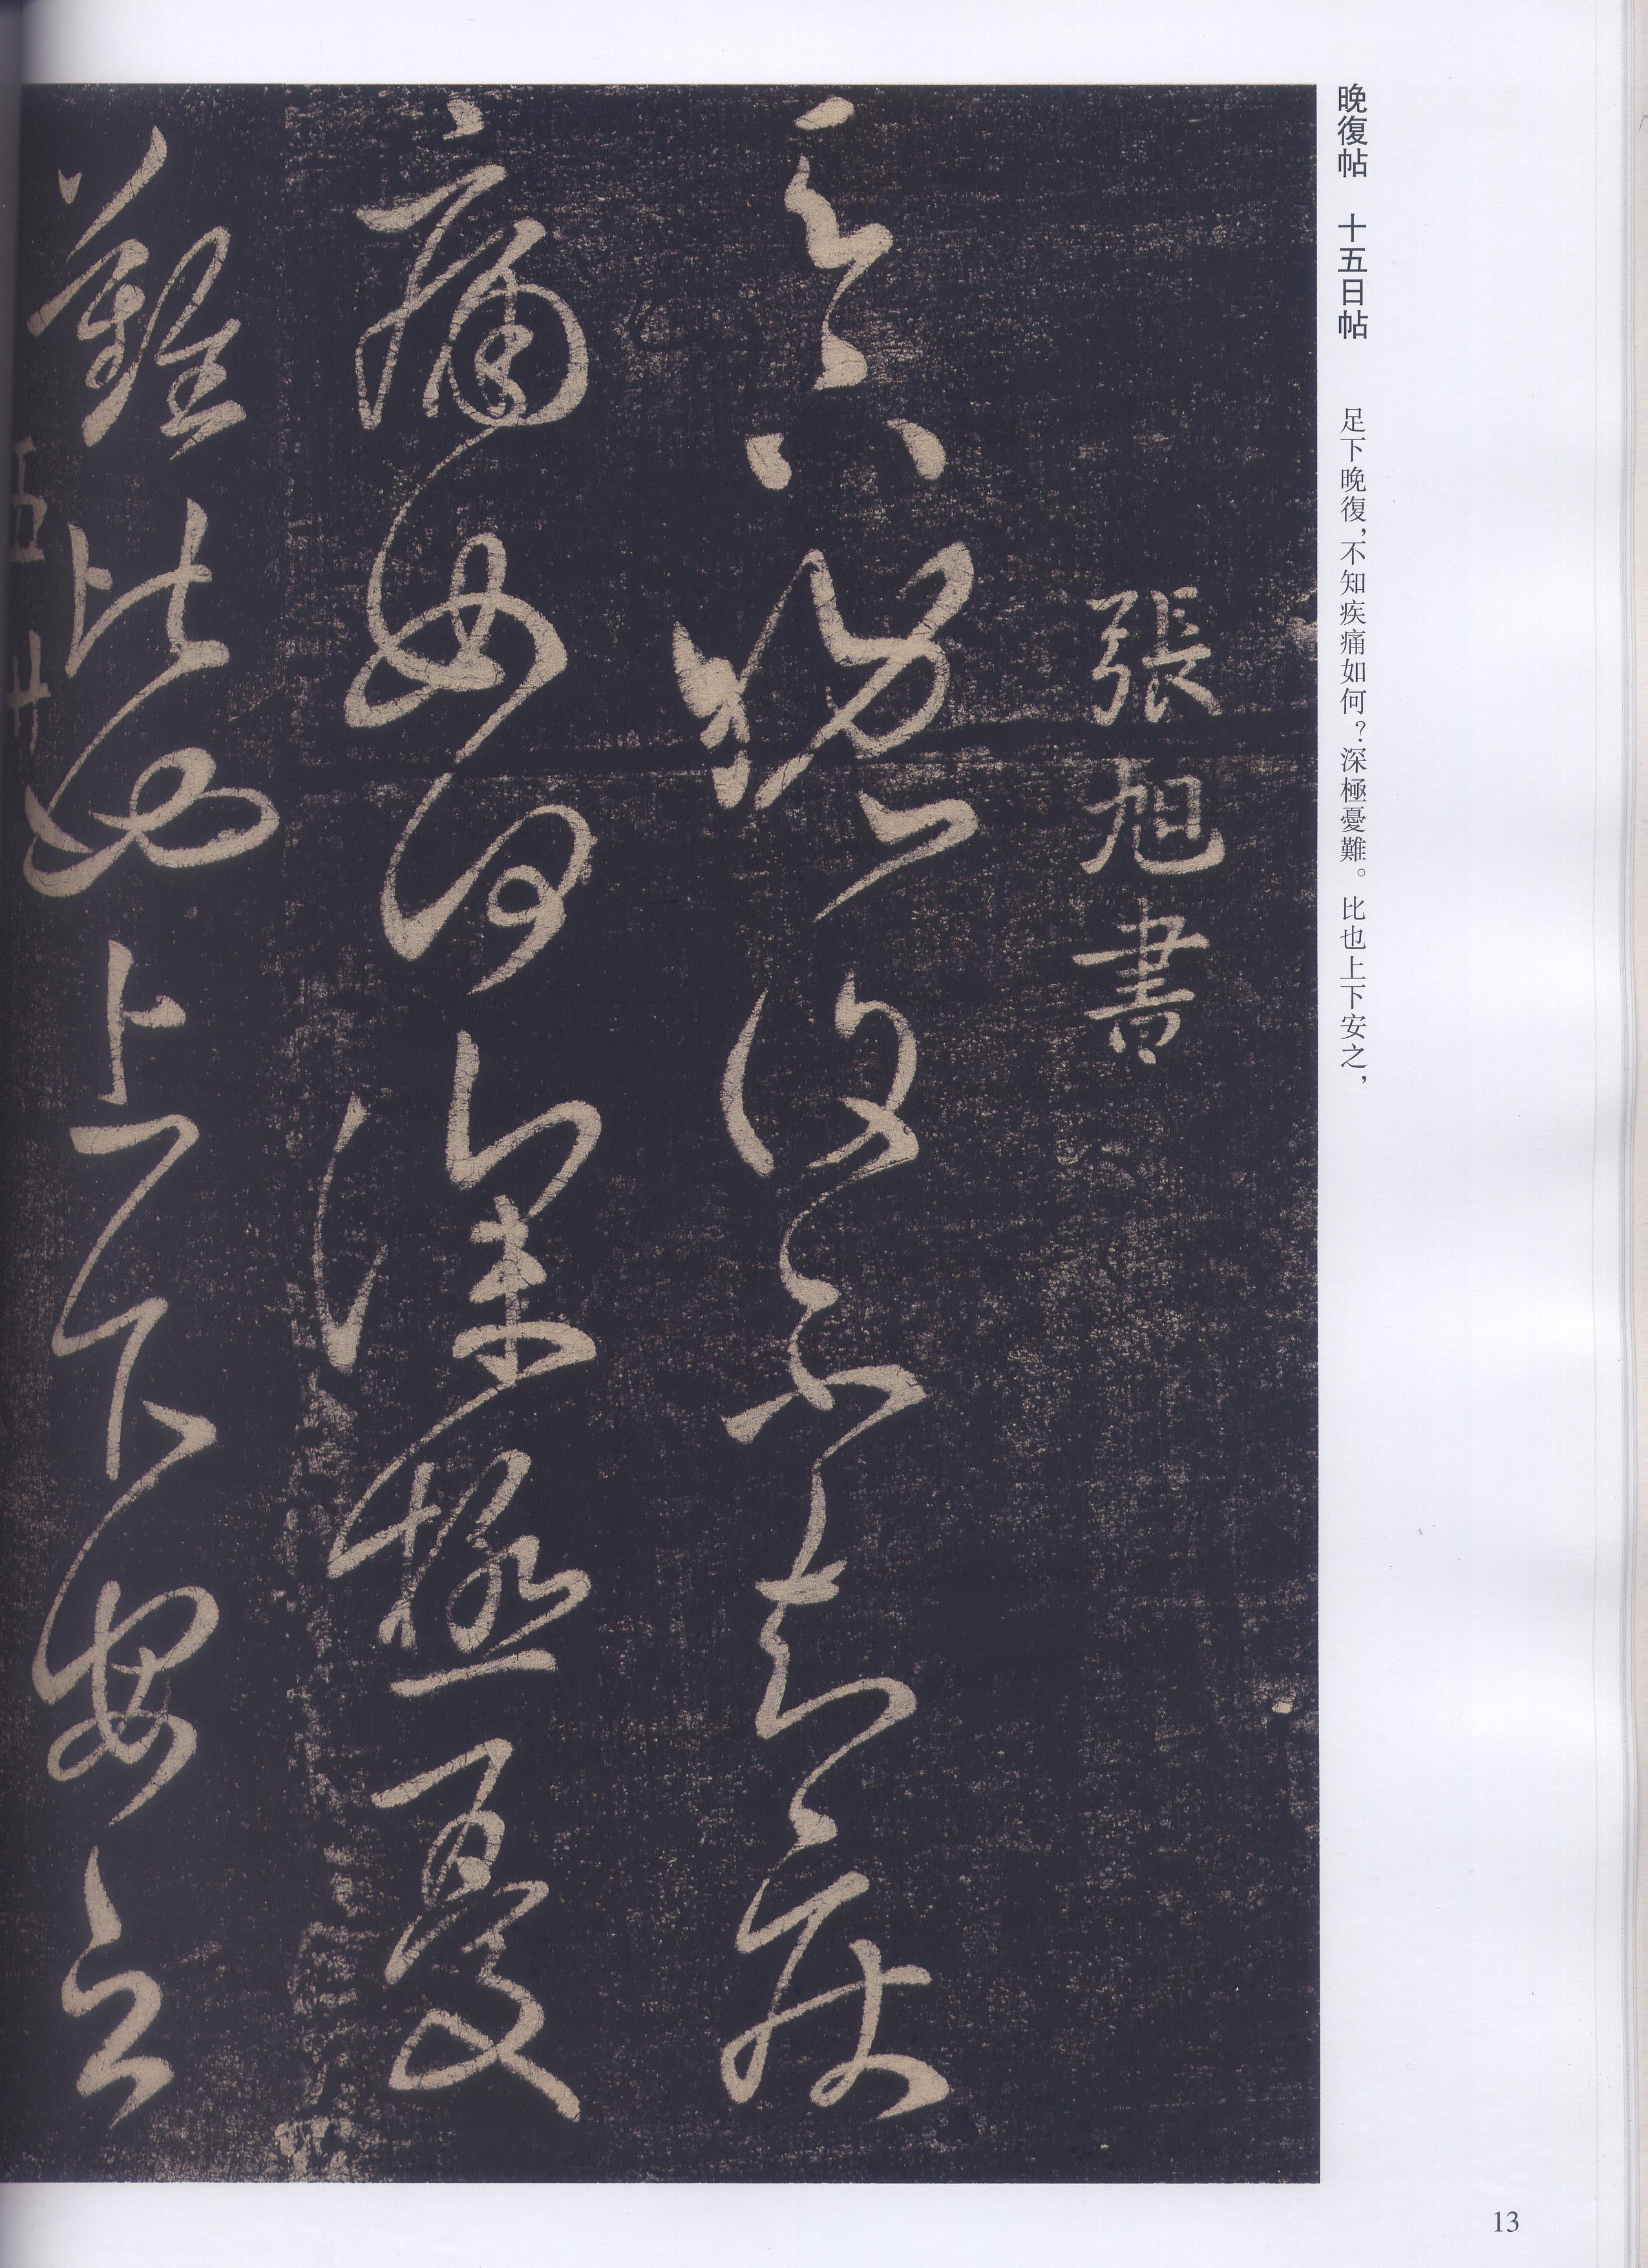 晚復帖　十五日帖　足下晚復，不知疾痛如何？深極憂難。比也上下安之，
張旭書
足下晚復不知疾
痛如何深極憂
難比也上下安之
五 廿
13